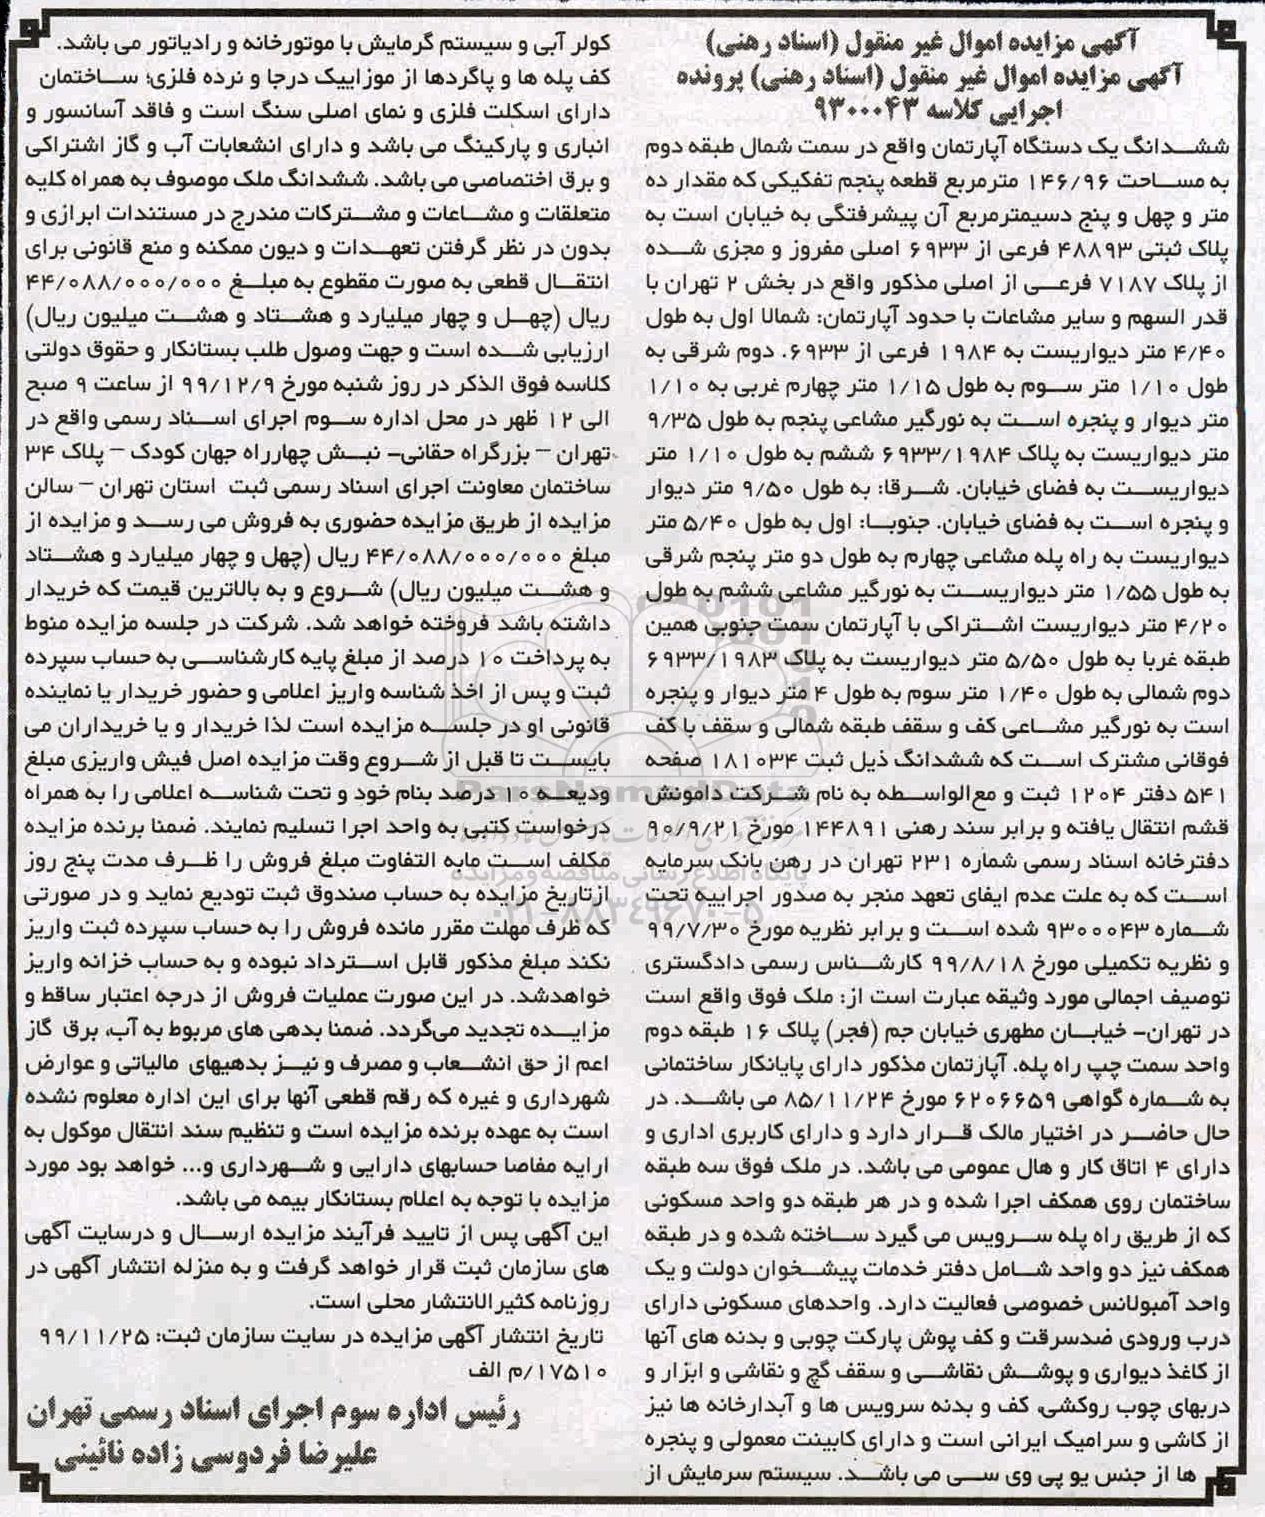 آگهی مزایده اموال غیر منقول (اسناد رهنی)
آگهی مزایده اموال غیر منقول (اسناد رهنی) پرونده
اجرایی کلاسه ۹۳۰۰۰۴۳
ششدانگ یک دستگاه آپارتمان واقع در سمت شمال طبقه دوم
به مساحت ۱۴۶/۹۶ مترمربع قطعه پنجم تفکیکی که مقدار ده
متر و چهل و پنج دسیمترمربع آن پیشرفتگی به خیابان است به
پلاک ثبتی ۴۸۸۹۳ فرعی از ۶۹۳۳ اصلی مفروز و مجزی شده
از پلاک ۷۱۸۷ فرعی از اصلی مذکور واقع در بخش ۲ تهران با
قدر السهم و سایر مشاعات با حدود آپارتمان: شمالا اول به طول
۴/۴۰ متر دیواریست به ۱۹۸۴ فرعی از ۶۹۳۳. دوم شرقی به
طول ۱/۱۰ متر سوم به طول ۱/۱۵ متر چهارم غربی به ۱/۱۰
متر دیوار و پنجره است به نورگیر مشاعی پنجم به طول ۹/۳۵
متر دیواریست به پلاک ۶۹۳۳/۱۹۸۴ ششم به طول ۱/۱۰ متر
دیواریست به فضای خیابان. شرقا: به طول ۹/۵۰ متر دیوار
و پنجره است به فضای خیابان. جنوبا: اول به طول ۵/۴۰ متر
دیواریست به راه پله مشاعی چهارم به طول دو متر پنجم شرقی
به طول ۱/۵۵ متر دیواریست به نورگیر مشاعی ششم به طول
۴/۲۰ متر دیواریست اشتراکی با آپارتمان سمت جنوبی همین
طبقه غربا به طول ۵/۵۰ متر دیواریست به پلاک ۶۹۳۳/۱۹۸۳
دوم شمالی به طول ۱/۴۰ متر سوم به طول ۴ متر دیوار و پنجره
است به نورگیر مشاعی کف و سقف طبقه شمالی و سقف با کف
فوقانی مشترک است که ششدانگ ذیل ثبت ۱۸۱۰۳۴ صفحه
۵۴۱ دفتر ۱۲۰۴ ثبت و مع‌الواسطه به نام شرکت دامونش
قشم انتقال یافته و برابر سند رهنی ۱۴۴۸۹۱ مورخ ۹۰/۹/۲۱
دفترخانه اسناد رسمی شماره ۲۳۱ تهران در رهن بانک سرمایه
است که به علت عدم ایفای تعهد منجر به صدور اجراییه تحت
شماره ۹۳۰۰۰۴۳ شده است و برابر نظریه مورخ ۹۹/۷/۳۰
و نظریه تکمیلی مورخ ۹۹/۸/۱۸ کارشناس رسمی دادگستری
توصیف اجمالی مورد وثیقه عبارت است از: ملک فوق واقع است
در تهران- خیابان مطهری خیابان جم (فجر) پلاک ۱۶ طبقه دوم
واحد سمت چپ راه پله. آپارتمان مذکور دارای پایانکار ساختمانی
به شماره گواهی ۶۲۰۶۶۵۹ مورخ ۸۵/۱۱/۲۴ می باشد. در
حال حاضر در اختیار مالک قرار دارد و دارای کاربری اداری و
دارای ۴ اتاق کار و هال عمومی می باشد. در ملک فوق سه طبقه
ساختمان روی همکف اجرا شده و در هر طبقه دو واحد مسکونی
که از طریق راه پله سرویس می گیرد ساخته شده و در طبقه
همکف نیز دو واحد شامل دفتر خدمات پیشخوان دولت و یک
واحد آمبولانس خصوصی فعالیت دارد. واحدهای مسکونی دارای
درب ورودی ضدسرقت و کف پوش پارکت چوبی و بدنه های آنها
از کاغذ دیواری و پوشش نقاشی و سقف گچ و نقاشی و ابزار و
دربهای چوب روکشی، کف و بدنه سرویس ها و آبدارخانه ها نیز
از کاشی و سرامیک ایرانی است و دارای کابینت معمولی و پنجره
ها از جنس یو پی وی سی می باشد. سیستم سرمایش از
کولر آبی و سیستم گرمایش با موتورخانه و رادیاتور می باشد.
کف پله ها و پاگردها از موزاییک درجا و نرده فلزی؛ ساختمان
دارای اسکلت فلزی و نمای اصلی سنگ است و فاقد آسانسور و
انباری و پارکینگ می باشد و دارای انشعابات آب و گاز اشتراکی
و برق اختصاصی می باشد. ششدانگ ملک موصوف به همراه کلیه
متعلقات و مشاعات و مشترکات مندرج در مستندات ابرازی و
بدون در نظر گرفتن تعهدات و دیون ممکنه و منع قانونی برای
انتقال قطعی به صورت مقطوع به مبلغ ۴۴/۰۸۸/۰۰۰/۰۰۰
ریال (چهل و چهار میلیارد و هشتاد و هشت میلیون ریال)
ارزیابی شده است و جهت وصول طلب بستانکار و حقوق دولتی
کلاسه فوق الذکر در روز شنبه مورخ ۹۹/۱۲/۹ از ساعت ۹ صبح
الی ۱۲ ظهر در محل اداره سوم اجرای اسناد رسمی واقع در
تهران – بزرگراه حقانی- نبش چهارراه جهان کودک – پلاک ۳۴
ساختمان معاونت اجرای اسناد رسمی ثبت استان تهران – سالن
مزایده از طریق مزایده حضوری به فروش می رسد و مزایده از
مبلغ ۴۴/۰۸۸/۰۰۰/۰۰۰ ریال (چهل و چهار میلیارد و هشتاد
و هشت میلیون ریال) شروع و به بالاترین قیمت که خریدار
داشته باشد فروخته خواهد شد. شرکت در جلسه مزایده منوط
به پرداخت ۱۰ درصد از مبلغ پایه کارشناسی به حساب سپرده
ثبت و پس از اخذ شناسه واریز اعلامی و حضور خریدار یا نماینده
قانونی او در جلسه مزایده است لذا خریدار و یا خریداران می
بایست تا قبل از شروع وقت مزایده اصل فیش واریزی مبلغ
ودیعه ۱۰ درصد بنام خود و تحت شناسه اعلامی را به همراه
درخواست کتبی به واحد اجرا تسلیم نمایند. ضمنا برنده مزایده
مکلف است مابه التفاوت مبلغ فروش را ظرف مدت پنج روز
ازتاریخ مزایده به حساب صندوق ثبت تودیع نماید و در صورتی
که ظرف مهلت مقرر مانده فروش را به حساب سپرده ثبت واریز
نکند مبلغ مذکور قابل استرداد نبوده و به حساب خزانه واریز
خواهدشد. در این صورت عملیات فروش از درجه اعتبار ساقط و
مزایده تجدید می‌گردد. ضمنا بدهی های مربوط به آب، برق گاز
اعم از حق انشعاب و مصرف و نیز بدهیهای مالیاتی و عوارض
شهرداری و غیره که رقم قطعی آنها برای این اداره معلوم نشده
است به عهده برنده مزایده است و تنظیم سند انتقال موکول به
ارایه مفاصا حسابهای دارایی و شهرداری و... خواهد بود مورد
مزایده با توجه به اعلام بستانکار بیمه می باشد.
این آگهی پس از تایید فرآیند مزایده ارسال و درسایت آگهی
های سازمان ثبت قرار خواهد گرفت و به منزله انتشار آگهی در
روزنامه کثیرالانتشار محلی است.
تاریخ انتشار آگهی مزایده در سایت سازمان ثبت: ۹۹/۱۱/۲۵
۱۷۵۱۰/م الف
رئیس اداره سوم اجرای اسناد رسمی تهران
علیرضا فردوسی زاده نائینی
ParsNamadData
پایگاه اطلاع رسانی مناقصه و مزایده
۰۲۱-۸۸۳۴۹۶۷۰-۵